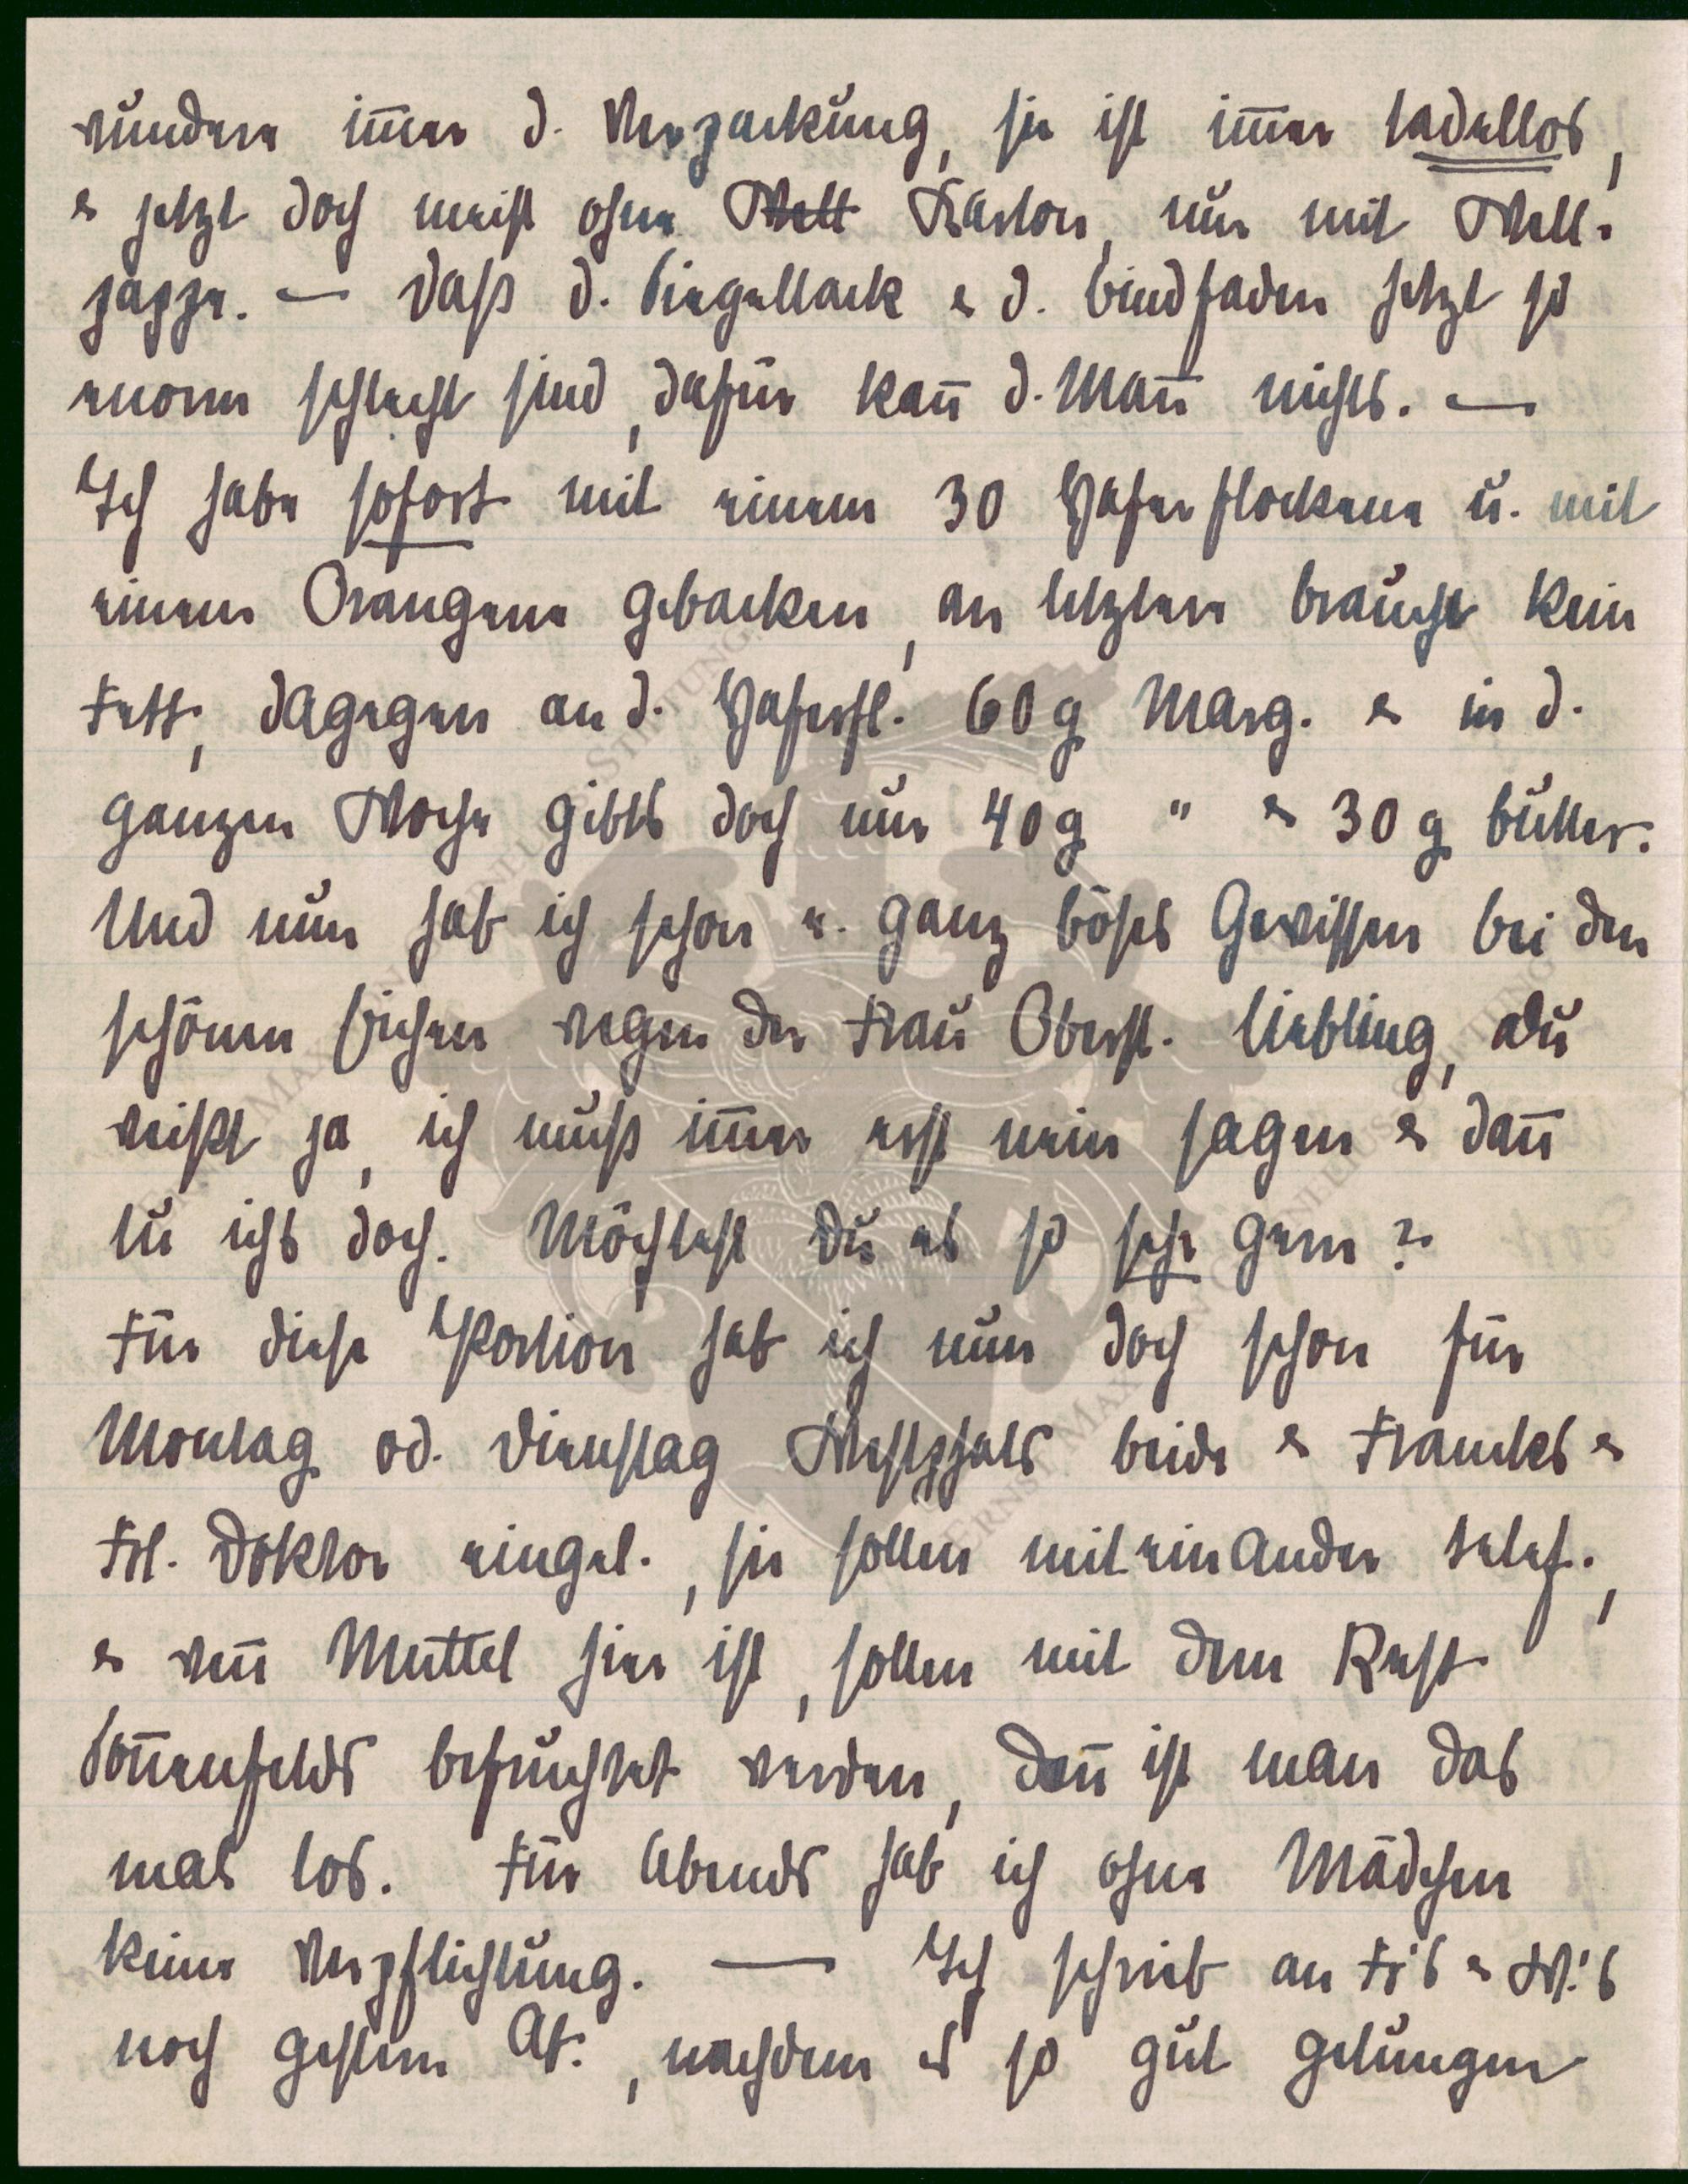 wundere im̄er d. Verpackung, sie ist im̄er tadellos,
& jetzt doch meist ohne Well Karton, nur mit Well-
pappe. — Dass d. Siegellack & d. Bindfaden jetzt so
enorm schlecht sind, dafür kan̄ d. Man̄ nichts. —
Ich habe sofort mit einem 30 Haferflockene u. mit
einem Orangene gebacken, an letztere braucht kein
Fett, dagegen an d. Haferfl. 60 g Marg. & in d.
ganzen Woche gibts doch nur 40 g " & 30 g Butter.
Und nun hab ich schon e. ganz böses Gewissen bei den
schönen wegen der Frau Oberst. Liebling, Du
weißt ja, ich muß im̄er erst nein sagen & dan̄
tu ichs doch. Möchtest Du es so sehr gern?
Für diese Portion hab ich nun doch schon für
Montag od. Dienstag Westphals beide & Franckes &
Frl. Doktor eingel., sie sollen miteinander telef.,
& wen̄ Muttel hier ist, sollen mit dem Rest
Son̄enfelds befruchtet werden, dan̄ ist man das
mal los. Für Abends hab ich ohne Mädchen
keine Verpflichtung. — Ich schrieb an Fr's & W.'s
noch gestern Ab., nachdem es so gut gelungen